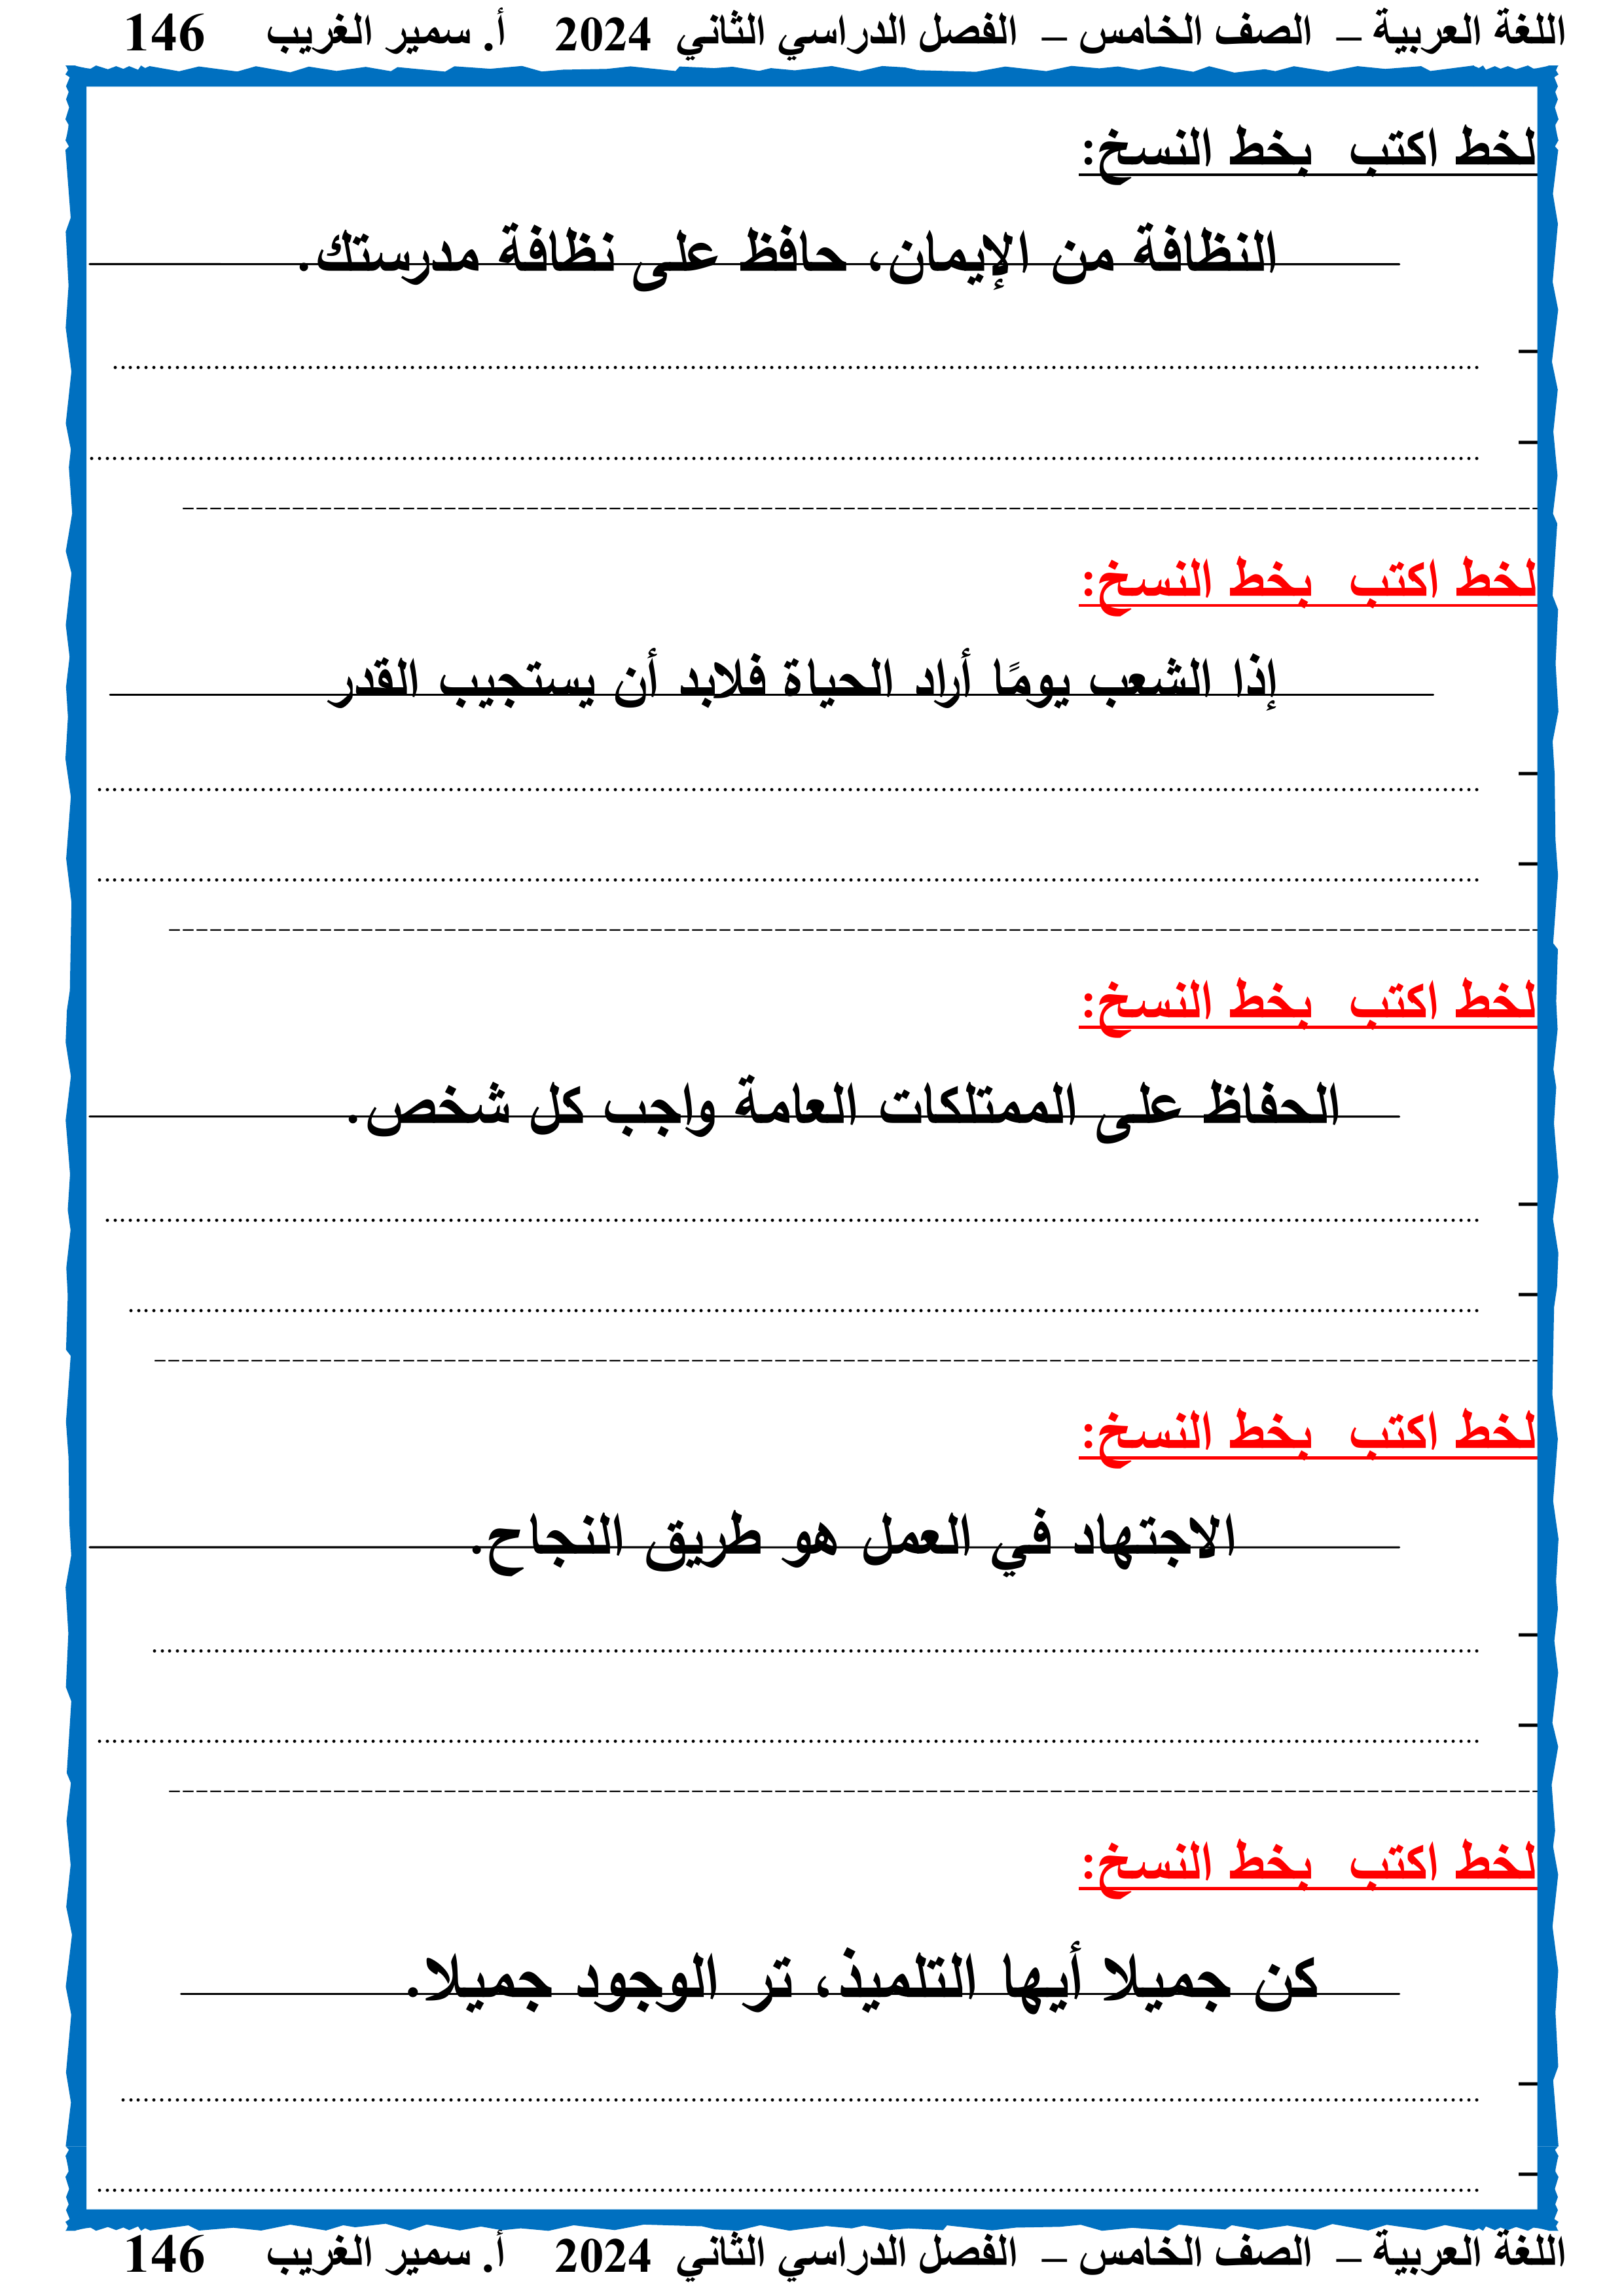 اللغة العربية – الصف الخامس – الفصل الدراسي الثاني 2024 أ. سمير الغريب 146
لخط اكتب بخط النسخ:
النظافة من الإيمان، حافظ على نظافة مدرستك.
-
-
لخط اكتب بخط النسخ:
إذا الشعب يومًا أراد الحياة فلابد أن يستجيب القدر
-
-
لخط اكتب بخط النسخ:
الحفاظ على الممتلكات العامة واجب كل شخص.
-
-
لخط اكتب بخط النسخ:
الاجتهاد في العمل هو طريق النجاح.
-
-
لخط اكتب بخط النسخ:
كن جميلا أيها التلميذ، تر الوجود جميلا.
-
-
اللغة العربية – الصف الخامس – الفصل الدراسي الثاني 2024 أ. سمير الغريب 146